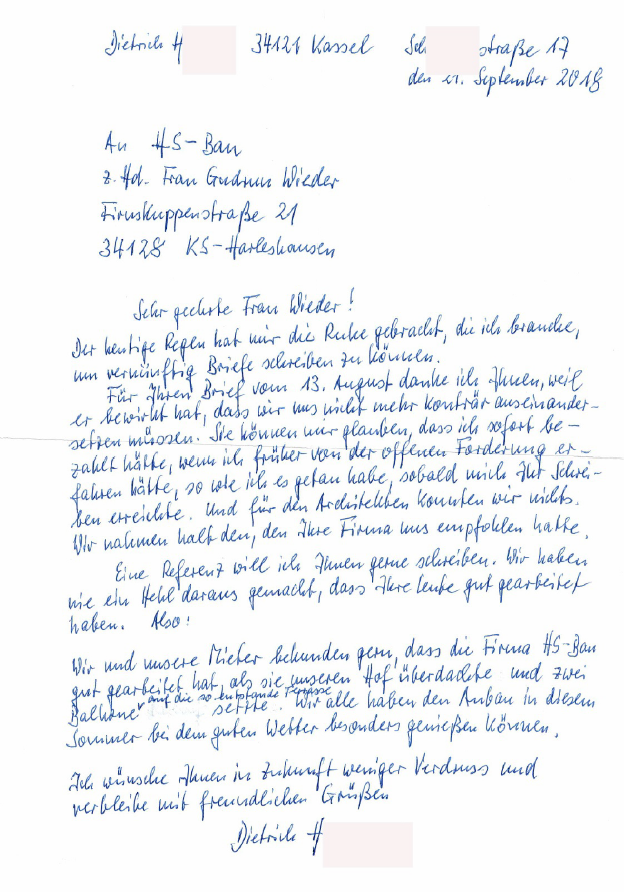 Dietrich H 34121 Kassel Sch straße 17
den 21. September 2018
An HS-Bau
z. Hd. Frau Gudrun Wieder
Firnskuppenstraße 21
34128 KS-Harleshausen
Sehr geehrte Frau Wieder!
Der heutige Regen hat mir die Ruhe gebracht, die ich brauche,
um vernünftig Briefe schreiben zu können.
Für Ihren Brief vom 13. August danke ich Ihnen, weil
er bewirkt hat, dass wir uns nicht mehr konträr auseinander-
setzen müssen. Sie können mir glauben, dass ich sofort be-
zahlt hätte, wenn ich früher von der offenen Forderung er-
fahren hätte, so wie ich es getan habe, sobald mich Ihr Schrei-
ben erreichte. Und für den Architekten konnten wir nichts.
Wir nahmen halt den, den Ihre Firma uns empfohlen hatte.
Eine Referenz will ich Ihnen gerne schreiben. Wir haben
nie ein Hehl daraus gemacht, dass Ihre Leute gut gearbeitet
haben. Also:
Wir und unsere Mieter bekunden gern, dass die Firma HS-Bau
gut gearbeitet hat, als sie unseren Hof überdachte und zwei
Balkone auf die so entstandene Terrasse setzte. Wir alle haben den Anbau in diesem
Sommer bei dem guten Wetter besonders genießen können.
Ich wünsche Ihnen in Zukunft weniger Verdruss und
verbleibe mit freundlichen Grüßen
Dietrich H